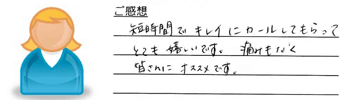 ご感想
短時間でキレイにカールしてもらって
とても嬉しいです。 痛みもなく
皆さんに オススメです。